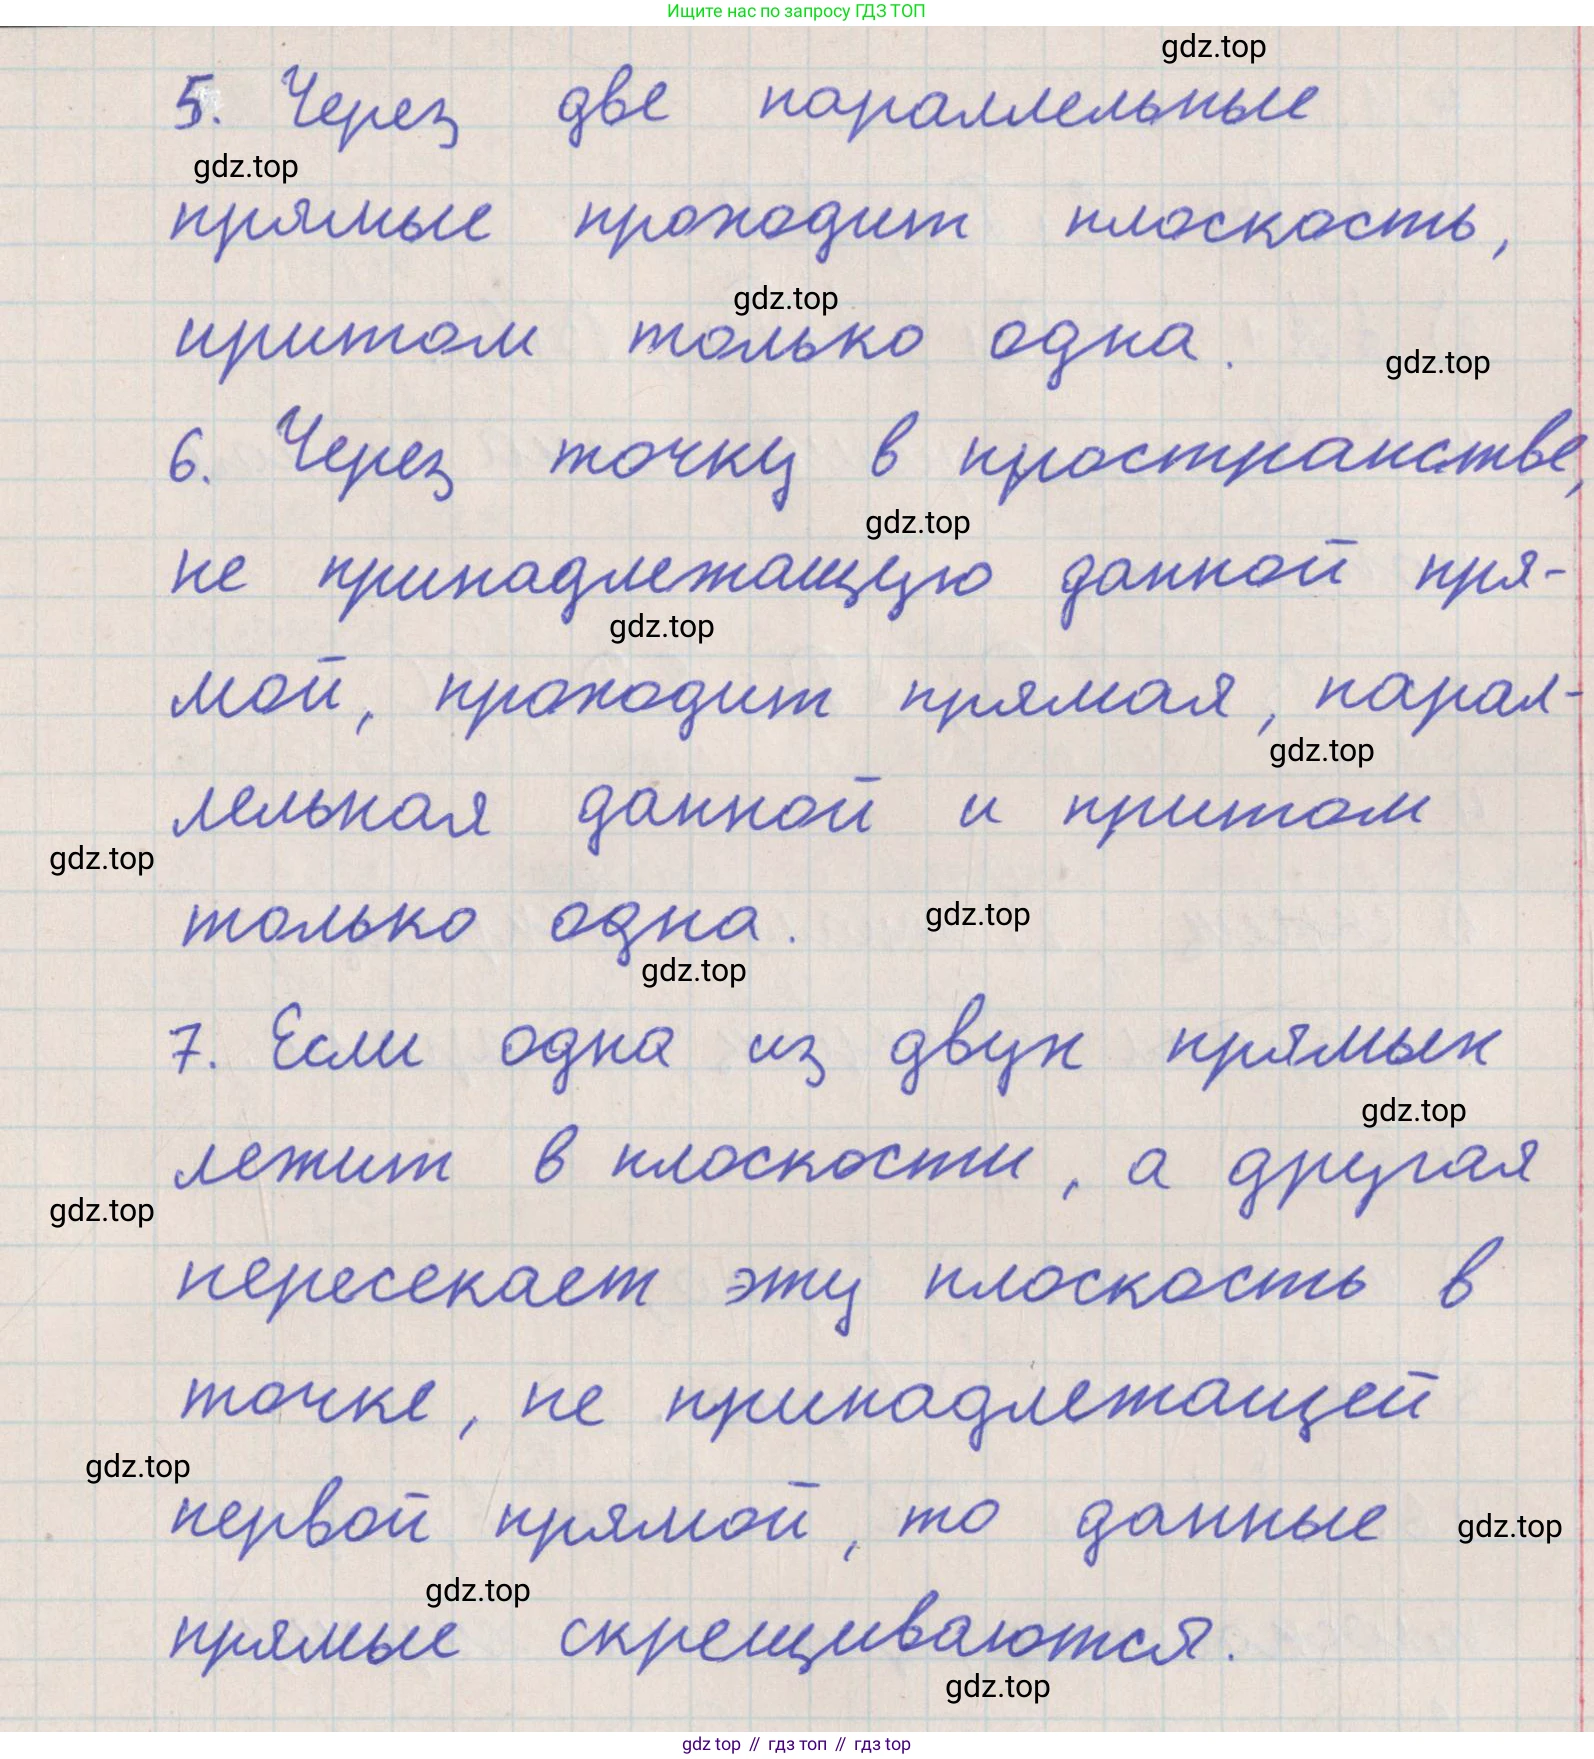 Ищите нас по запросу ГДЗ ТОП
gdz.top
5. Через две параллельные
gdz.top
прямые проходит плоскость,
gdz.top
притом только одна.
gdz.top
6. Через точку в пространстве,
gdz.top
не принадлежащую данной пря-
gdz.top
мой, проходит прямая, парал-
gdz.top
лельная данной и притом
gdz.top
только одна.
gdz.top
gdz.top
7. Если одна из двух прямых
gdz.top
лежит в плоскости, а другая
gdz.top
пересекает эту плоскость в
точке, не принадлежащей
gdz.top
первой прямой, то данные
gdz.top
gdz.top
прямые скрещиваются.
gdz.top
gdz top // гдз топ // гдз top